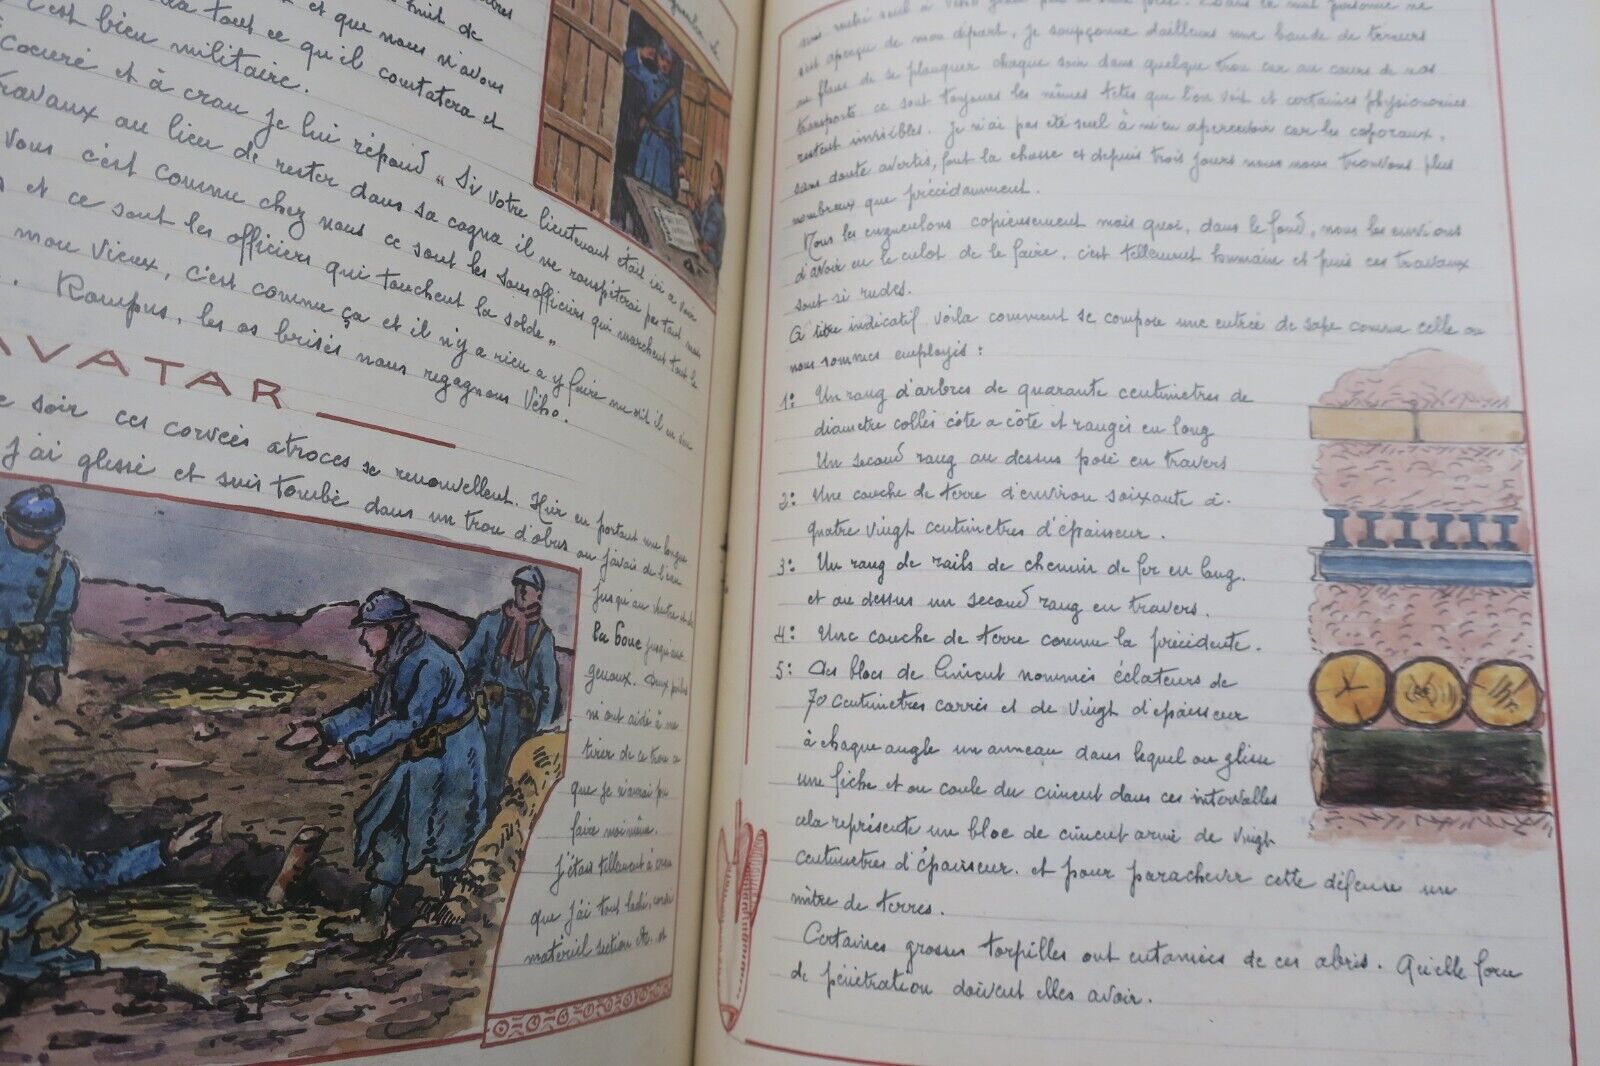 et que nous n'avons
tout ce qu'il constatera et
c'est bien militaire.
Écoeuré et à cran je lui répond " Si votre lieutenant était ici a voir
travaux au lieu de rester dans sa cagna il ne rouspéterai pas tant mon
Vous c'est comme chez nous ce sont les sous officiers qui marchent tout le
et ce sont les officiers qui touchent la solde "
mon vieux, c'est comme ça et il n'y a rien a y faire
Rompus, les os brisés nous regagnons Vého.
AVATAR
soir ces corvées atroces se renouvellent. Hier en portant une longue
j'ai glissé et suis tombé dans un trou d'obus ou j'avais de l'eau
jusqu'au ventre et de
la boue jusqu'aux
genoux. Deux poilus
m'ont aidé à me
tirer de ce trou
que je n'aurai pu
faire moi même.
J'étais tellement à cran
que j'ai tout laché, corvée
matériel section etc. et
suis rentré seul à Vého
s'est aperçu de mon départ, je soupçonne d'ailleurs une bande de tireurs
au flanc de se planquer chaque soir dans quelque trou car au cours de nos
transports ce sont toujours les mêmes têtes que l'on voit et certaines physionomies
restent invisibles. Je n'ai pas été seul à m'en apercevoir car les caporaux,
sans doute avertis, font la chasse et depuis trois jours nous nous trouvons plus
nombreux que précédamment.
Nous les engueulons copieusement mais quoi, dans le fond, nous les envions
d'avoir eu le culot de le faire, c'est tellement humain et puis ces travaux
sont si rudes.
A titre indicatif, voila comment se compose une entrée de sape comme celle ou
nous sommes employés :
1: Un rang d'arbres de quarante centimètres de
diamètre collés côte a côte et rangés en long
Un second rang au dessus posé en travers
2: Une couche de terre d'environ soixante à
quatre vingt centimètres d'épaisseur.
3: Un rang de rails de chemin de fer en long.
et au dessus un second rang en travers.
4: Une couche de terre comme la précédente.
5: Des blocs de ciment nommés éclateurs de
70 centimètres carrés et de vingt d'épaisseur
à chaque angle un anneau dans lequel on glisse
une fiche et on coule du ciment dans ces intervalles
cela représente un bloc de ciment armé de vingt
centimètres d'épaisseur. et pour parachever cette défense un
mètre de terres.
Certaines grosses torpilles ont entamées de ces abris. Qu'elle force
de pénétration doivent elles avoir.